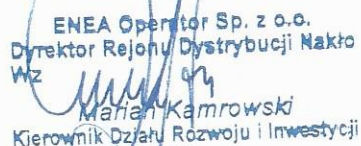 ENEA Operator Sp. z o.o.
Dyrektor Rejonu Dystrybucji Nakło
Wz
Marian Kamrowski
Kierownik Działu Rozwoju i Inwestycji